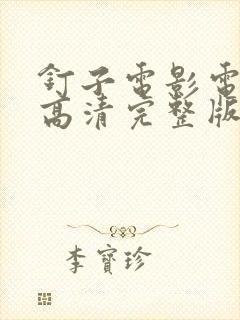 釘子電影電
高清完整版
李寶珍